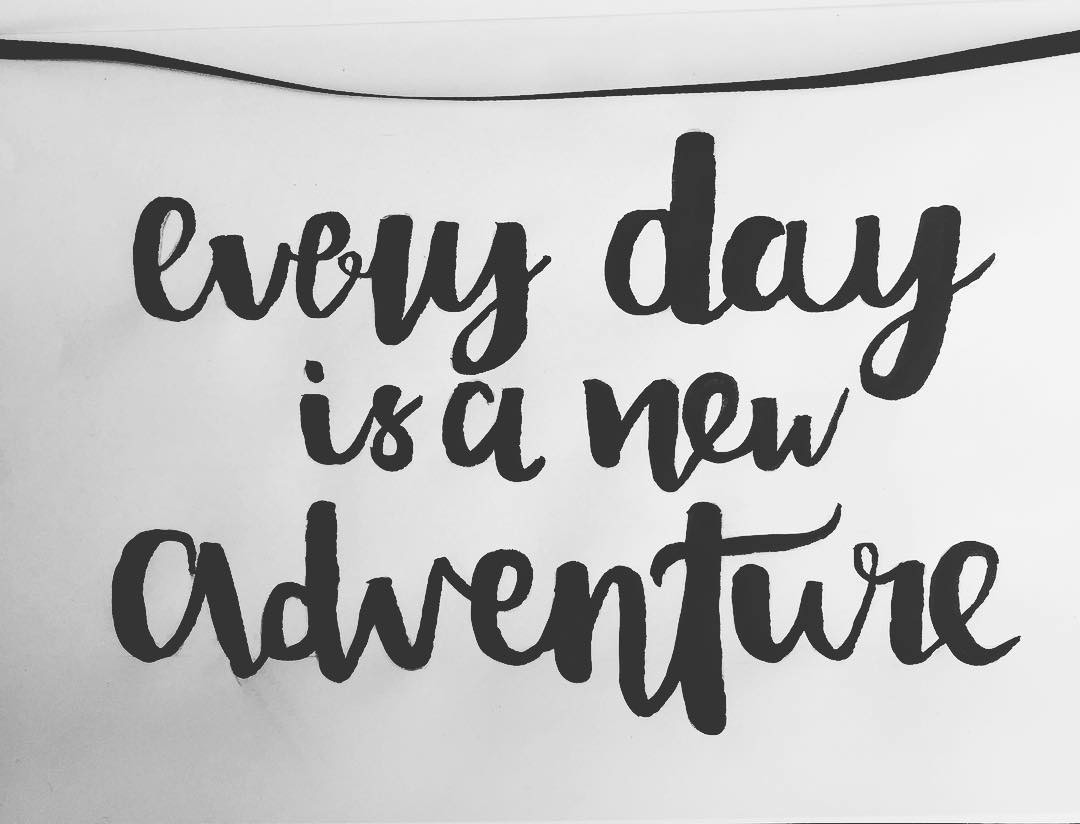 every day
is a new
adventure